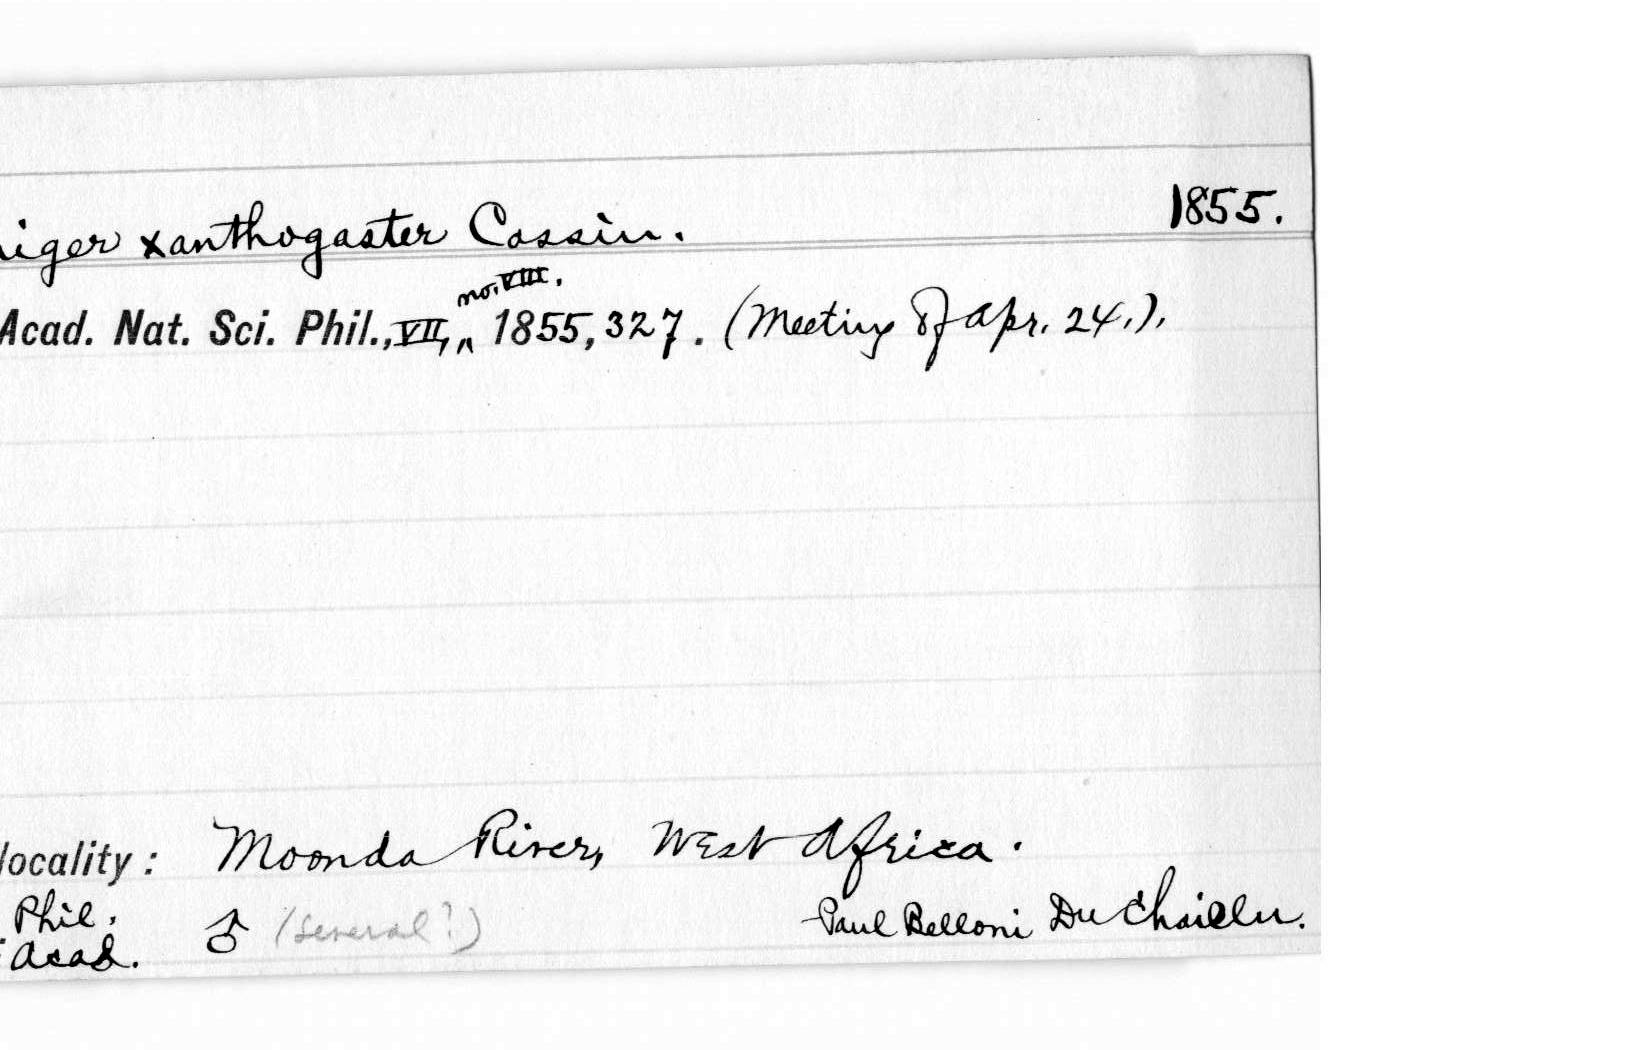 1855.
iger xanthogaster Cassin.
no. VIII.
Acad. Nat. Sci. Phil., VII, ^ 1855, 327. (Meeting of Apr. 24.).
locality: Moonda River, West Africa.
Phil. ♂ (several?) Paul Belloni Du Chaillu.
Acad.